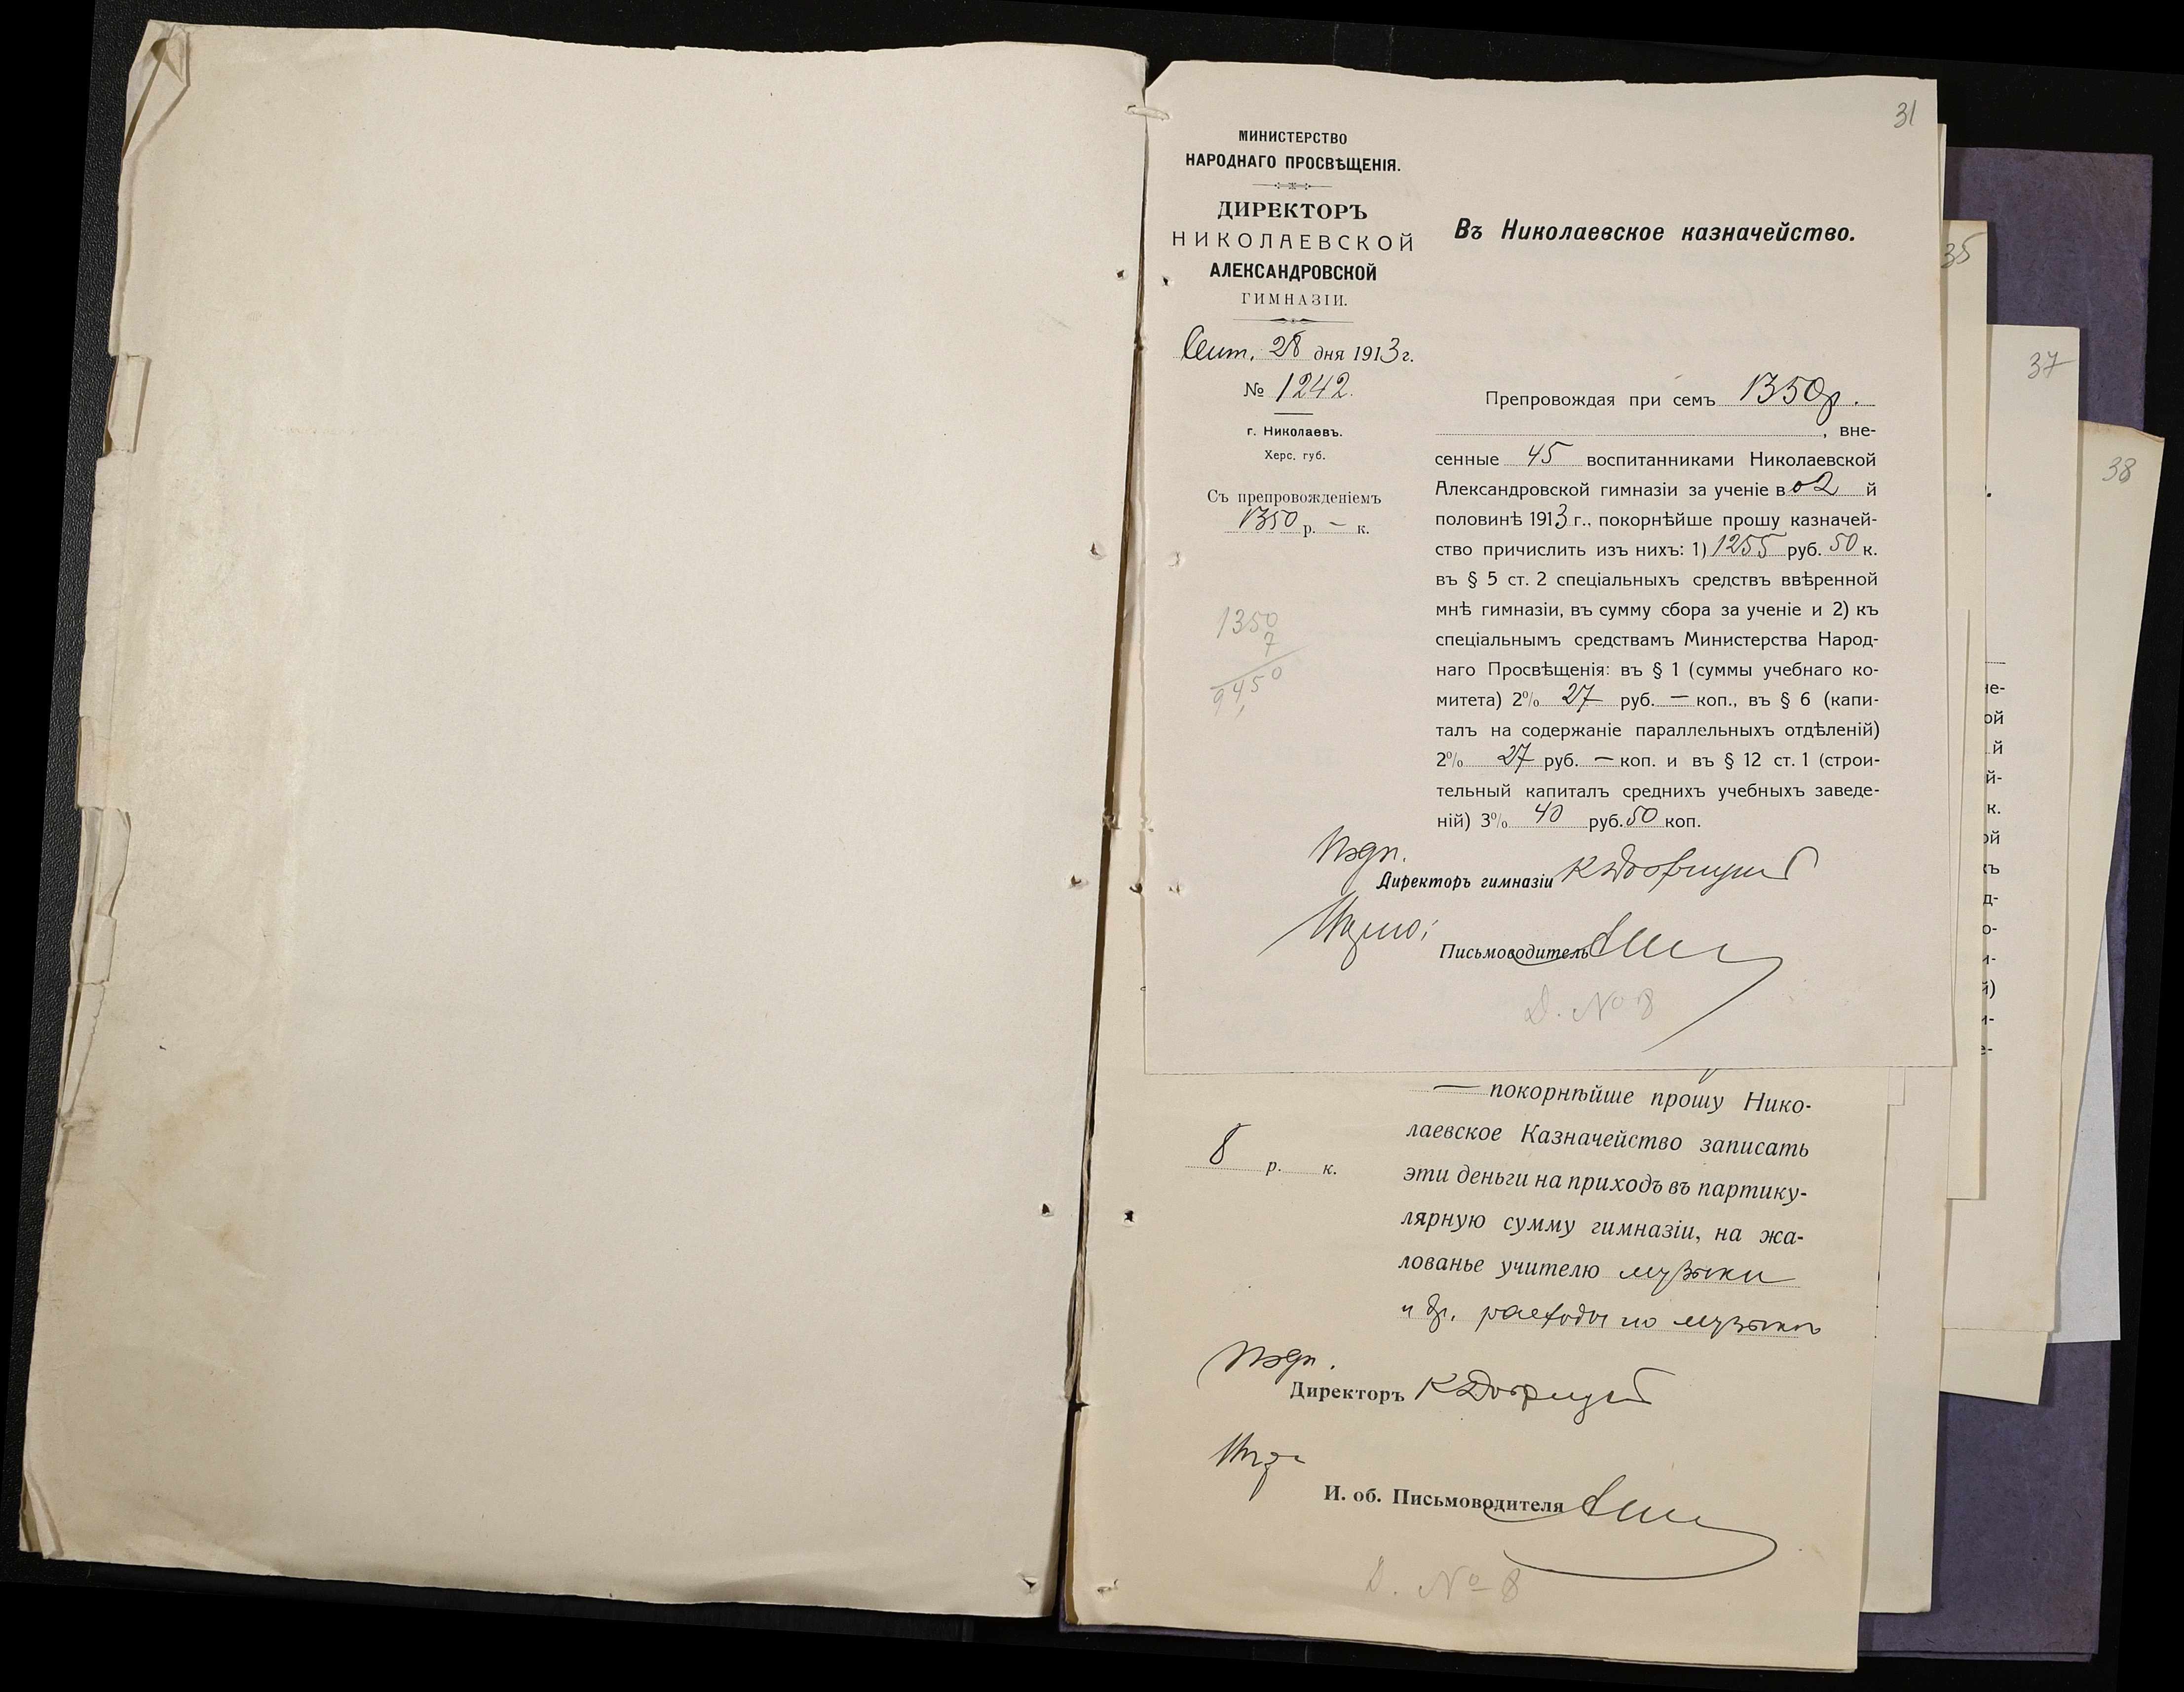 31
МИНИСТЕРСТВО
НАРОДНАГО ПРОСВѢЩЕНІЯ.
ДИРЕКТОРЪ
НИКОЛАЕВСКОЙ
АЛЕКСАНДРОВСКОЙ
ГИМНАЗІИ.
Сент. 28 дня 1913 г.
№ 1242.
г. Николаевъ.
Херс. губ.
Съ препровожденіемъ
1350 р. — к.
1350
7
9450
Въ Николаевское казначейство.
Препровождая при семъ 1350 р.
, вне-
сенные 45 воспитанниками Николаевской
Александровской гимназіи за ученіе во 2 й
половинѣ 1913 г., покорнѣйше прошу казначей-
ство причислить изъ нихъ: 1) 1255 руб. 50 к.
въ § 5 ст. 2 спеціальныхъ средствъ ввѣренной
мнѣ гимназіи, въ сумму сбора за ученіе и 2) къ
спеціальнымъ средствамъ Министерства Народ-
наго Просвѣщенія: въ § 1 (суммы учебнаго ко-
митета) 2% 27 руб. — коп., въ § 6 (капи-
талъ на содержаніе параллельныхъ отдѣленій)
2% 27 руб. — коп. и въ § 12 ст. 1 (строи-
тельный капиталъ среднихъ учебныхъ заведе-
ній) 3% 40 руб. 50 коп.
Подп.
Директоръ гимназіи
Письмоводитель
Д. № 8
— покорнѣйше прошу Нико-
лаевское Казначейство записать
эти деньги на приходъ въ партику-
лярную сумму гимназіи, на жа-
лованье учителю музыки
и др. расходы по музыкѣ
8 р. к.
Подп.
Директоръ
И. об. Письмоводителя
Д. № 8
35
37
38